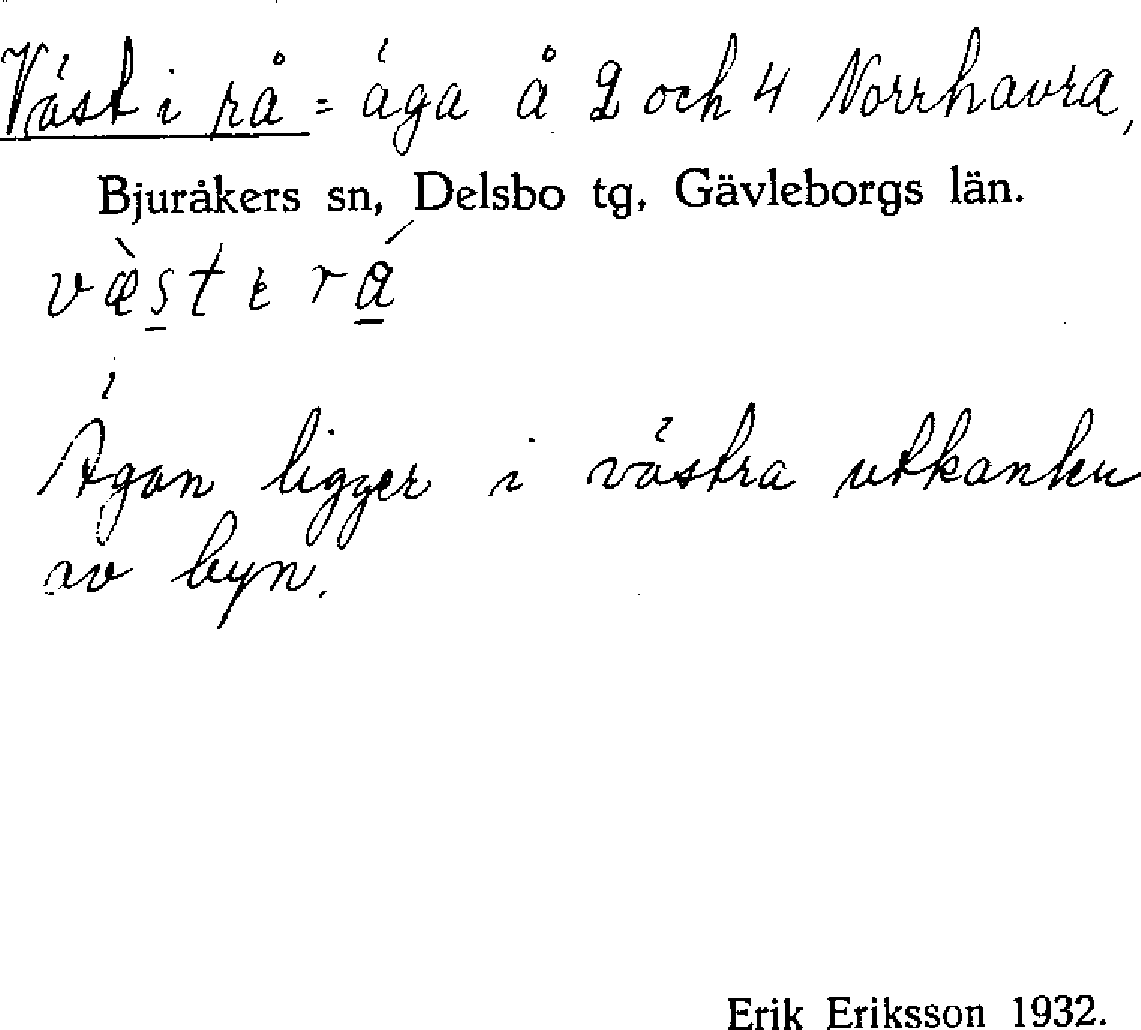 Väst i rå = äga å 2 och 4 Norrhavra,
Bjuråkers sn, Delsbo tg, Gävleborgs län.
væ̀st ɩ rá
Ägan ligger i västra utkanten
av byn.
Erik Eriksson 1932.